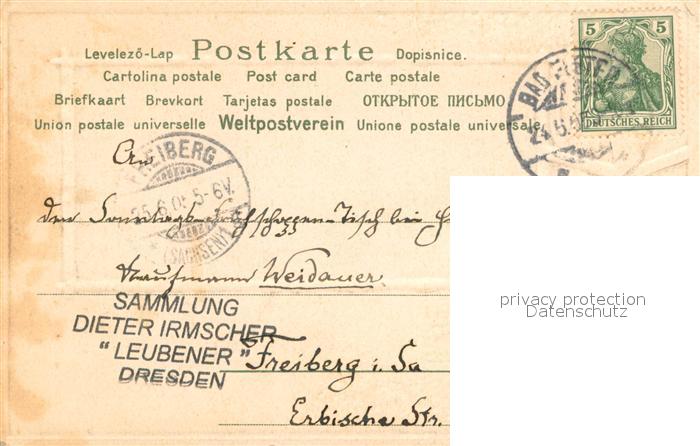 Levelező-Lap Postkarte Dopisnice.
Cartolina postale Post card Carte postale
Briefkaart Brevkort Tarjetas postale ОТКРЫТОЕ ПИСЬМО
Union postale universelle Weltpostverein Unione postale universale
5 5
DEUTSCHES REICH
BAD ELSTER
24.6.
FREIBERG
25.6.05 5-6V.
(SACHSEN)1
An
den Sonntags-Tisch bei
Kaufmann Weidauer
Freiberg i. Sa
Erbische Str.
SAMMLUNG
DIETER IRMSCHER
"LEUBENER"
DRESDEN
privacy protection
Datenschutz